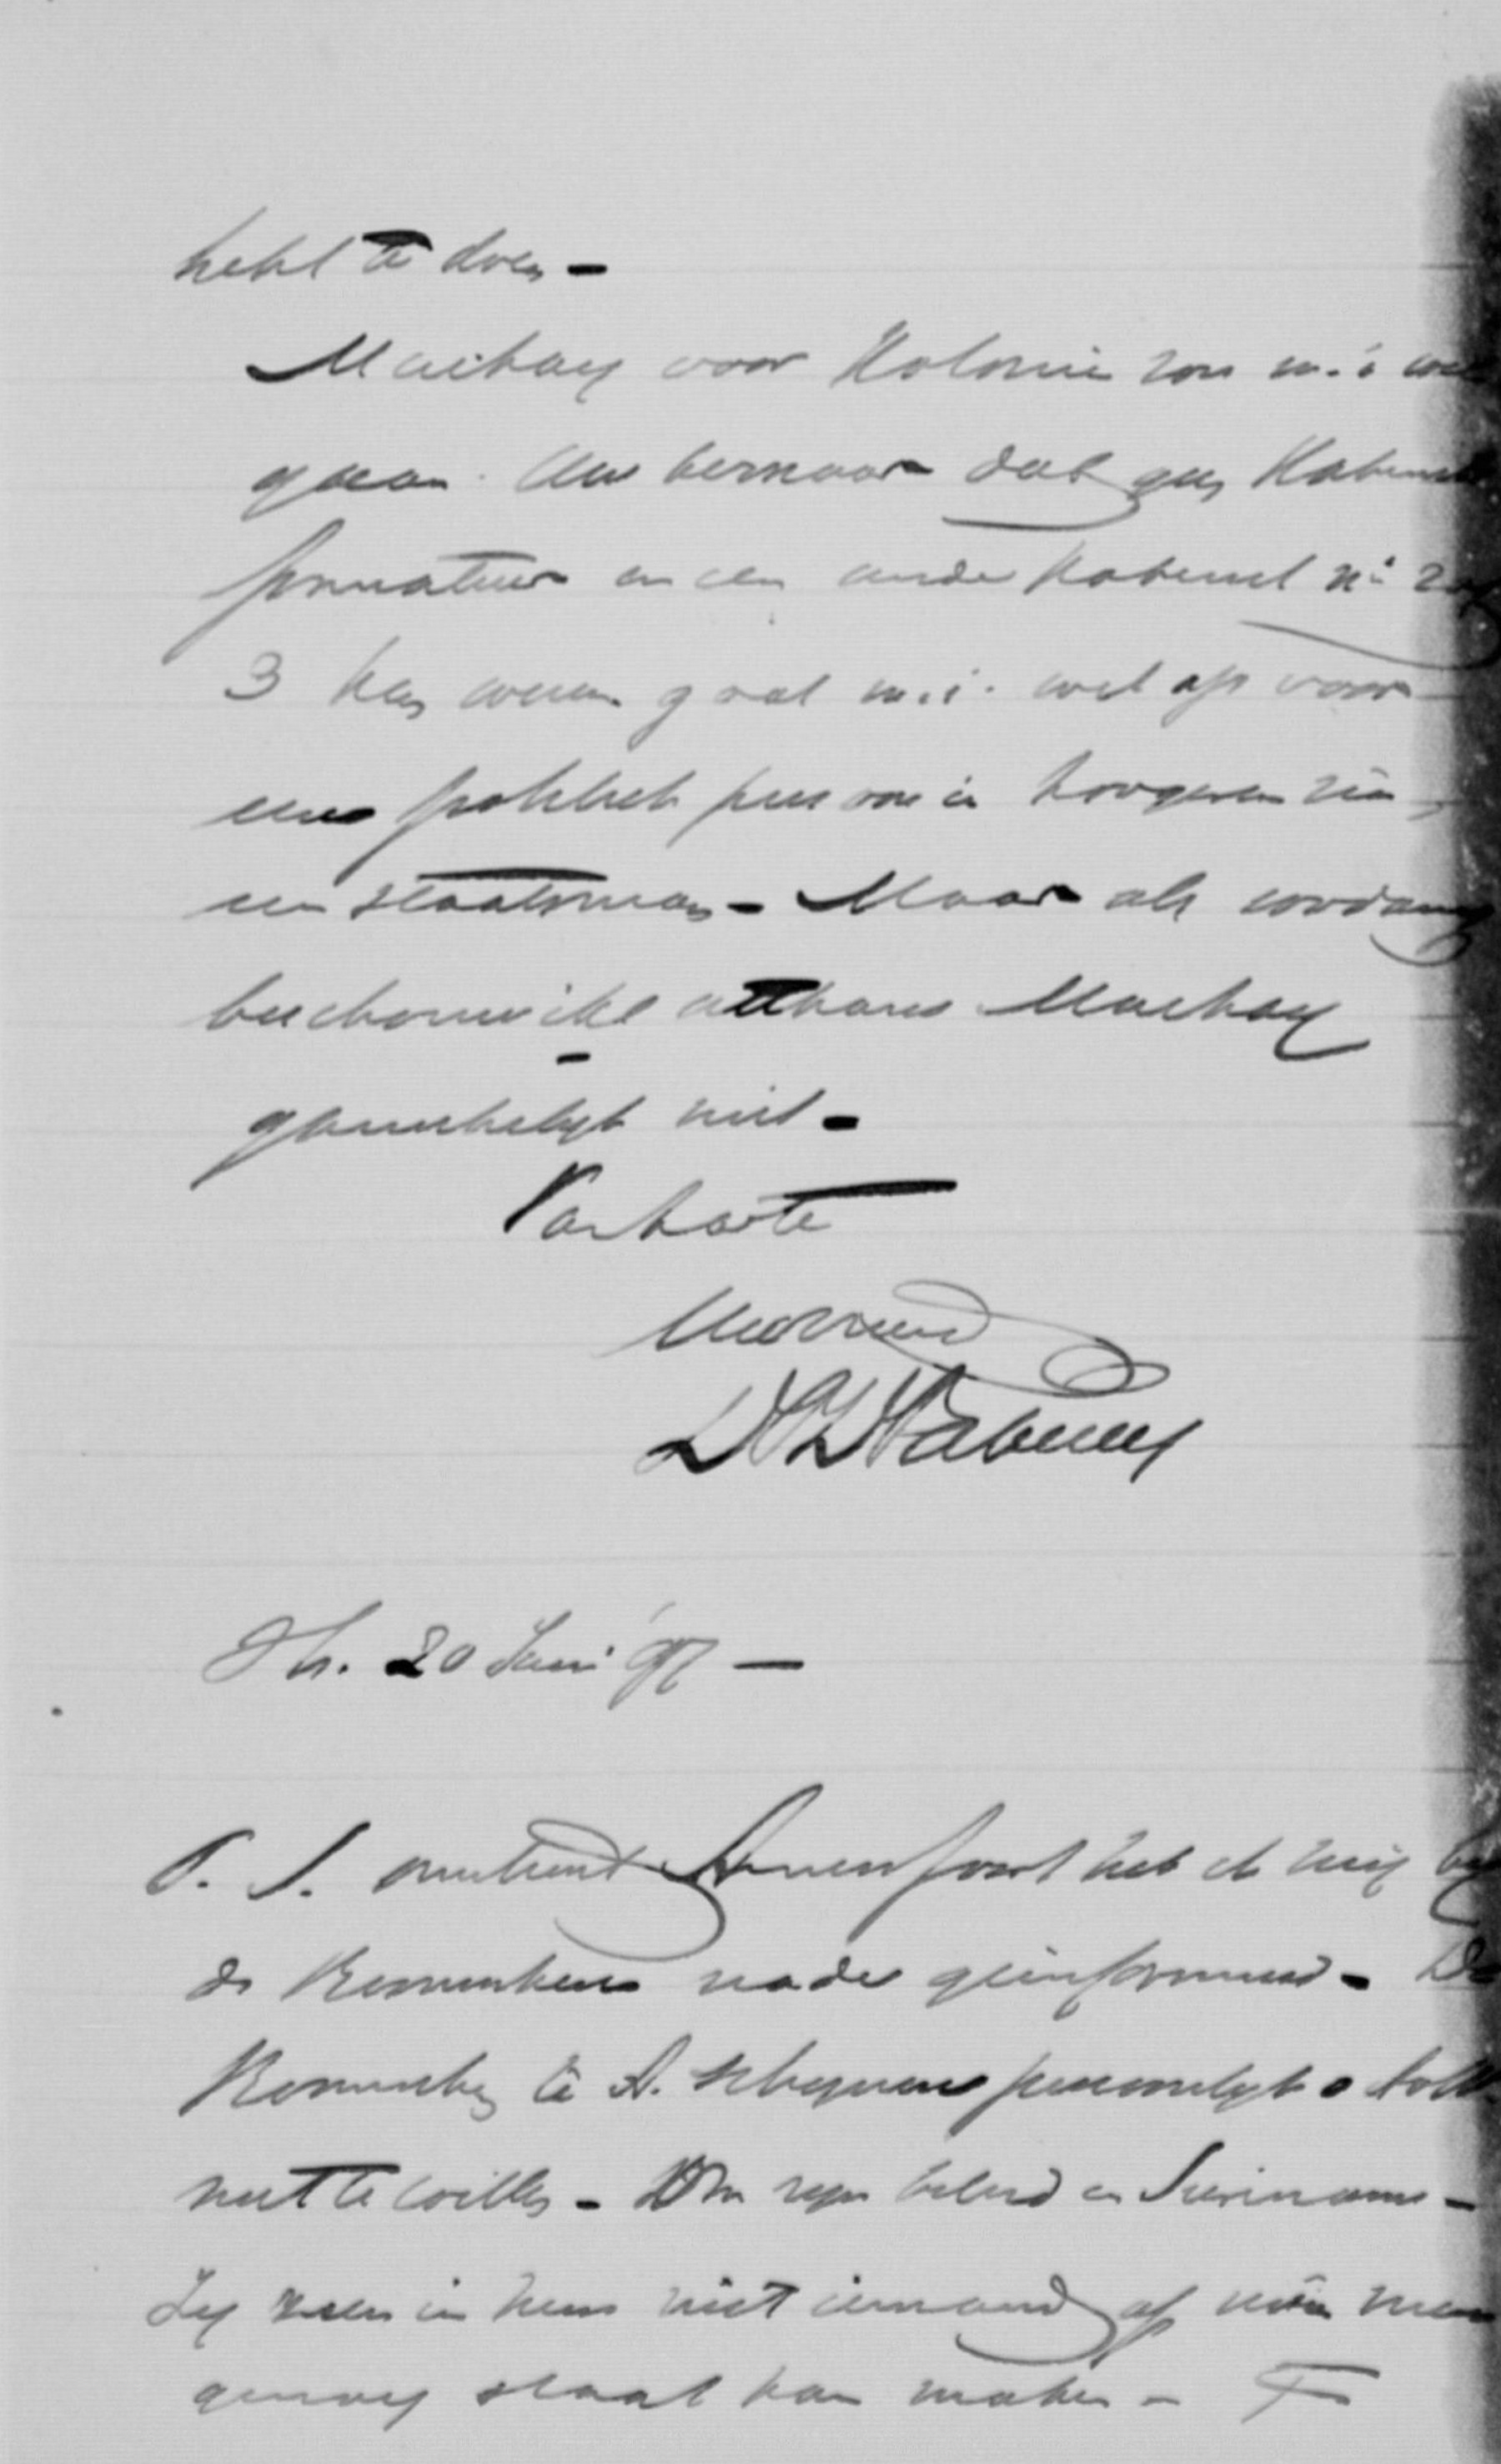 hebt te doen –
Mackay voor Kolonien zou m.i. wel
gaan. Uw bezwaar dat gy Kabinets
formateur en een ander Kabinet
3 kan weren gaat m.i. wel op voor
een politiek persoon in hoogeren zin,
een staatsman – Maar als zoodanig
beschouw ik althans Mackay
ganschelyk niet –
Van harte
Uw vriend
DPDFabius
Ah. 20 Juni '97 –
P.S. omtrent Amersfoort heb ik mij by
de Roomschen nader geinformeerd – De
Roomschen te A. schynen persoonlyk
niet te willen – Om zyn beleid in Suriname –
Zy zien in hem niet iemand op wien men
genoeg staat kan maken –